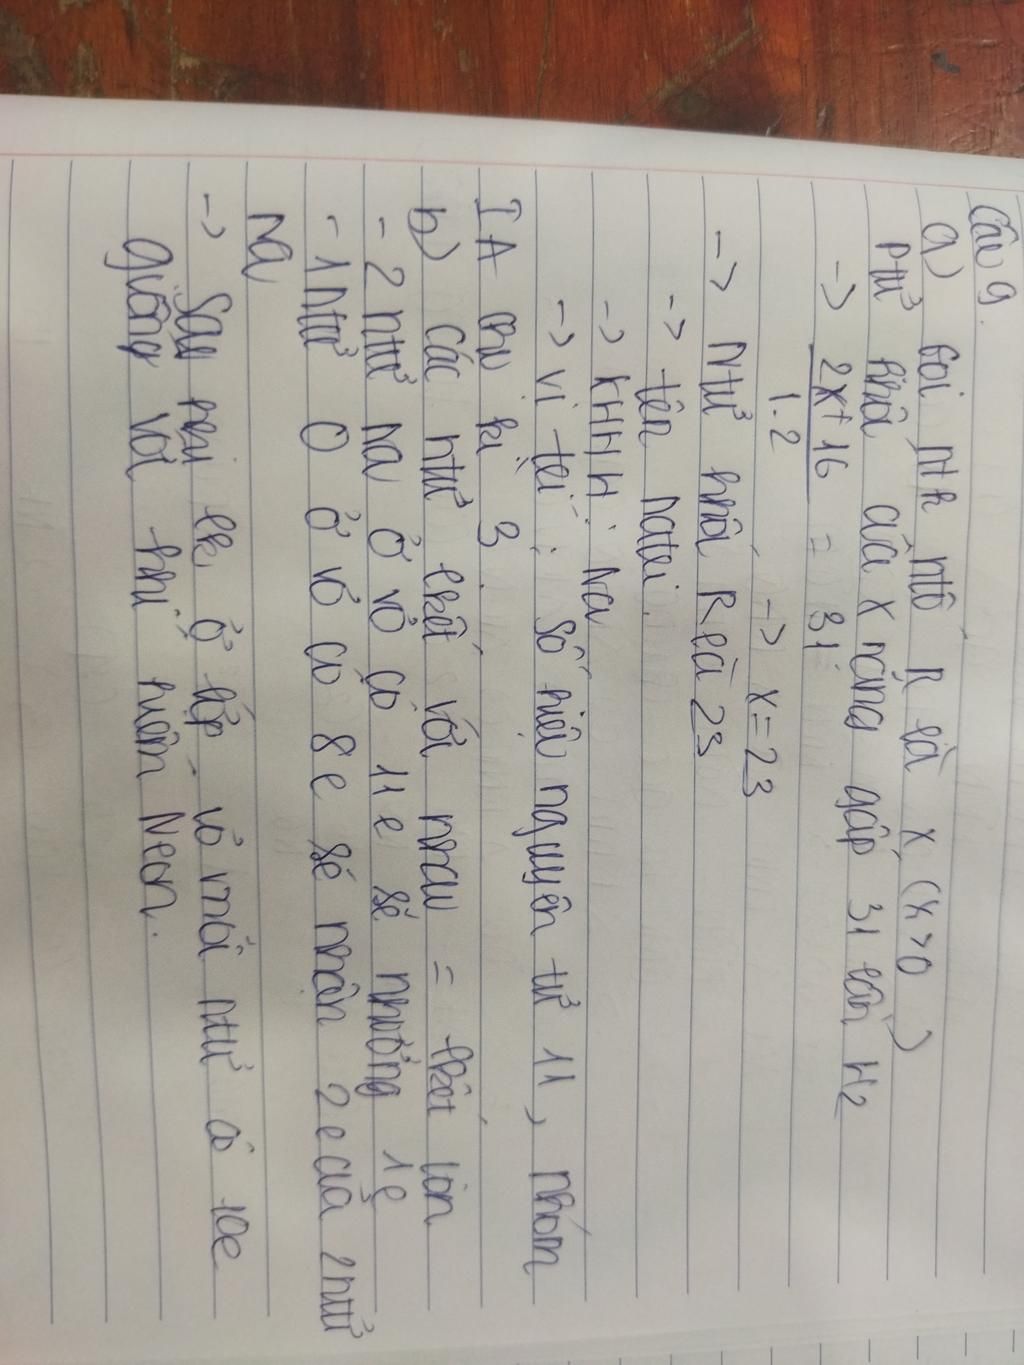 Câu 9.
a) Gọi ntk ntố R là x (x>0)
ptử³ khối của X nặng gấp 31 lần H2
-> 2x+16 / 1.2 = 31
-> x=23
-> Ntử³ khối R là 23
-> tên natri.
-> KHHH: Na
-> vị trí: Số hiệu nguyên tử 11, nhóm
IA chu kì 3.
b) Các ntử³ lkết với nhau = lkết ion
- 2 ntử³ Na ở vỏ có 11e sẽ nhường 1e
- 1 ntử³ O ở vỏ có 8e sẽ nhận 2e của 2 ntử³
Na
-> Sau khi lk ở lớp vỏ mỗi ntử³ có 10e
giống với khí hiếm Neon.